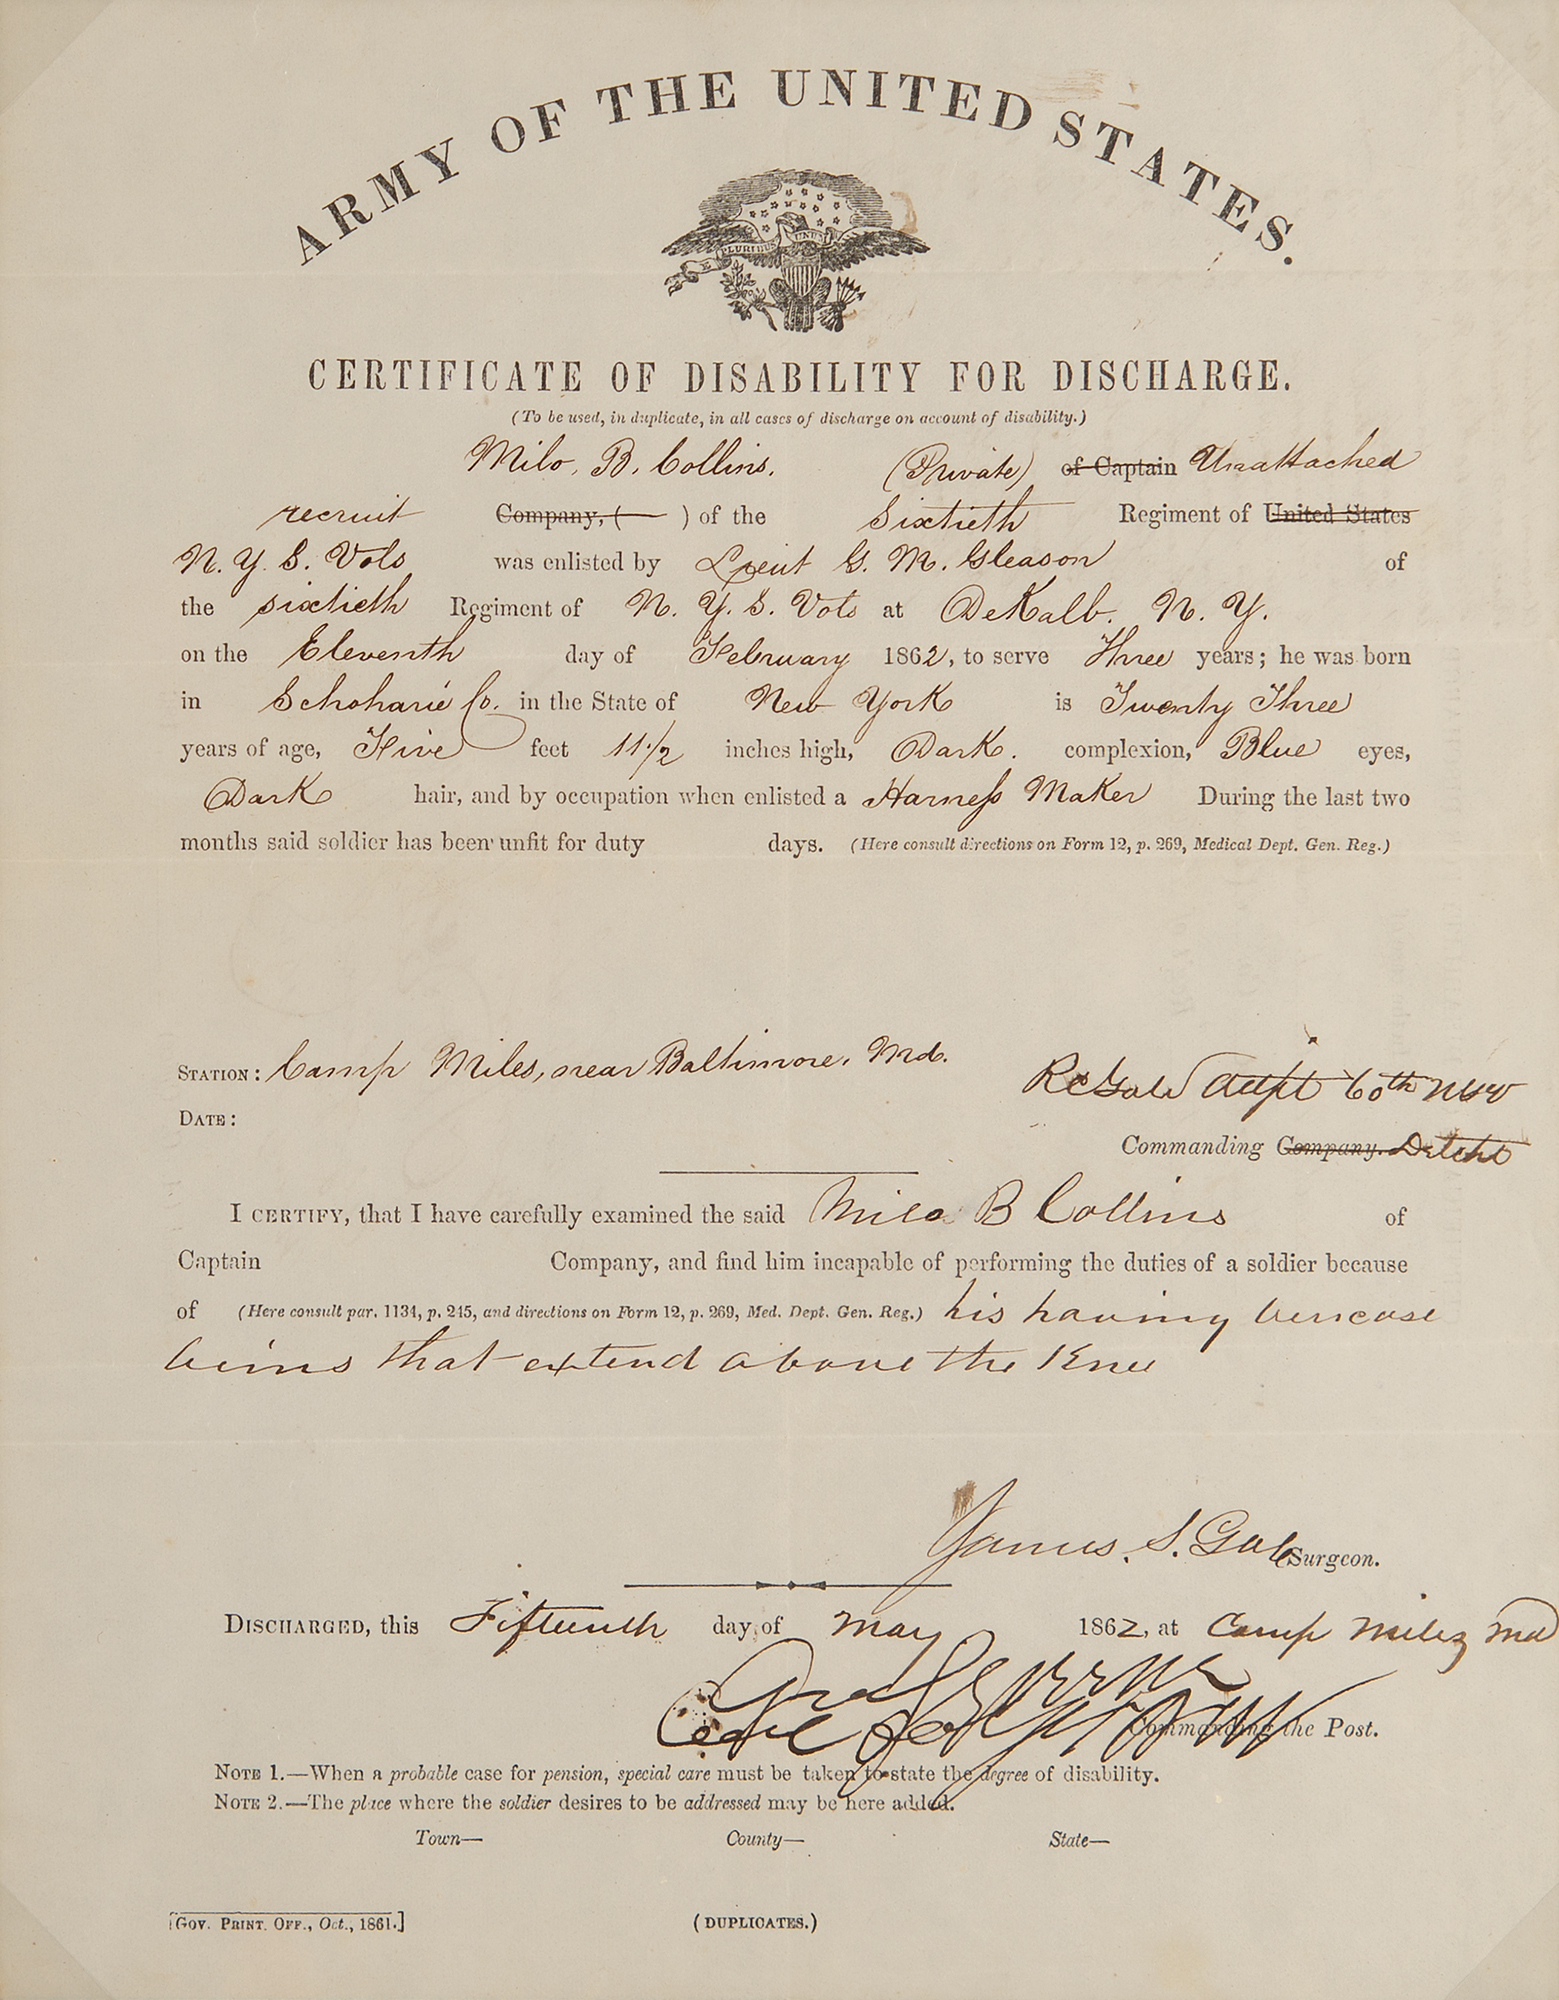 ARMY OF THE UNITED STATES.
E PLURIBUS UNUM
CERTIFICATE OF DISABILITY FOR DISCHARGE.
(To be used, in duplicate, in all cases of discharge on account of disability.)
Milo. B. Collins. (Private) of Captain Unattached
recruit Company, ( ) of the Sixtieth Regiment of United States
N. Y. S. Vols was enlisted by Lieut G. M. Gleason of
the sixtieth Regiment of N. Y. S. Vols at DeKalb. N. Y.
on the Eleventh day of February 1862, to serve Three years; he was born
in Schoharie Co. in the State of New York is Twenty Three
years of age, Five feet 11 1/2 inches high, Dark. complexion, Blue eyes,
Dark hair, and by occupation when enlisted a Harness Maker During the last two
months said soldier has been unfit for duty days. (Here consult directions on Form 12, p. 269, Medical Dept. Gen. Reg.)
STATION: Camp Miles, near Baltimore. Md.
60th
DATE:
Commanding Company. Detcht
I CERTIFY, that I have carefully examined the said Milo B Collins of
Captain Company, and find him incapable of performing the duties of a soldier because
of (Here consult par. 1134, p. 245, and directions on Form 12, p. 269, Med. Dept. Gen. Reg.) his having vericose
veins that extend above the Knee
James. S. Gale Surgeon.
DISCHARGED, this Fifteenth day of May 1862, at Camp Miles Md
Commanding the Post.
NOTE 1.—When a probable case for pension, special care must be taken to state the degree of disability.
NOTE 2.—The place where the soldier desires to be addressed may be here added.
Town— County— State—
[GOV. PRINT. OFF., Oct., 1861.] (DUPLICATES.)